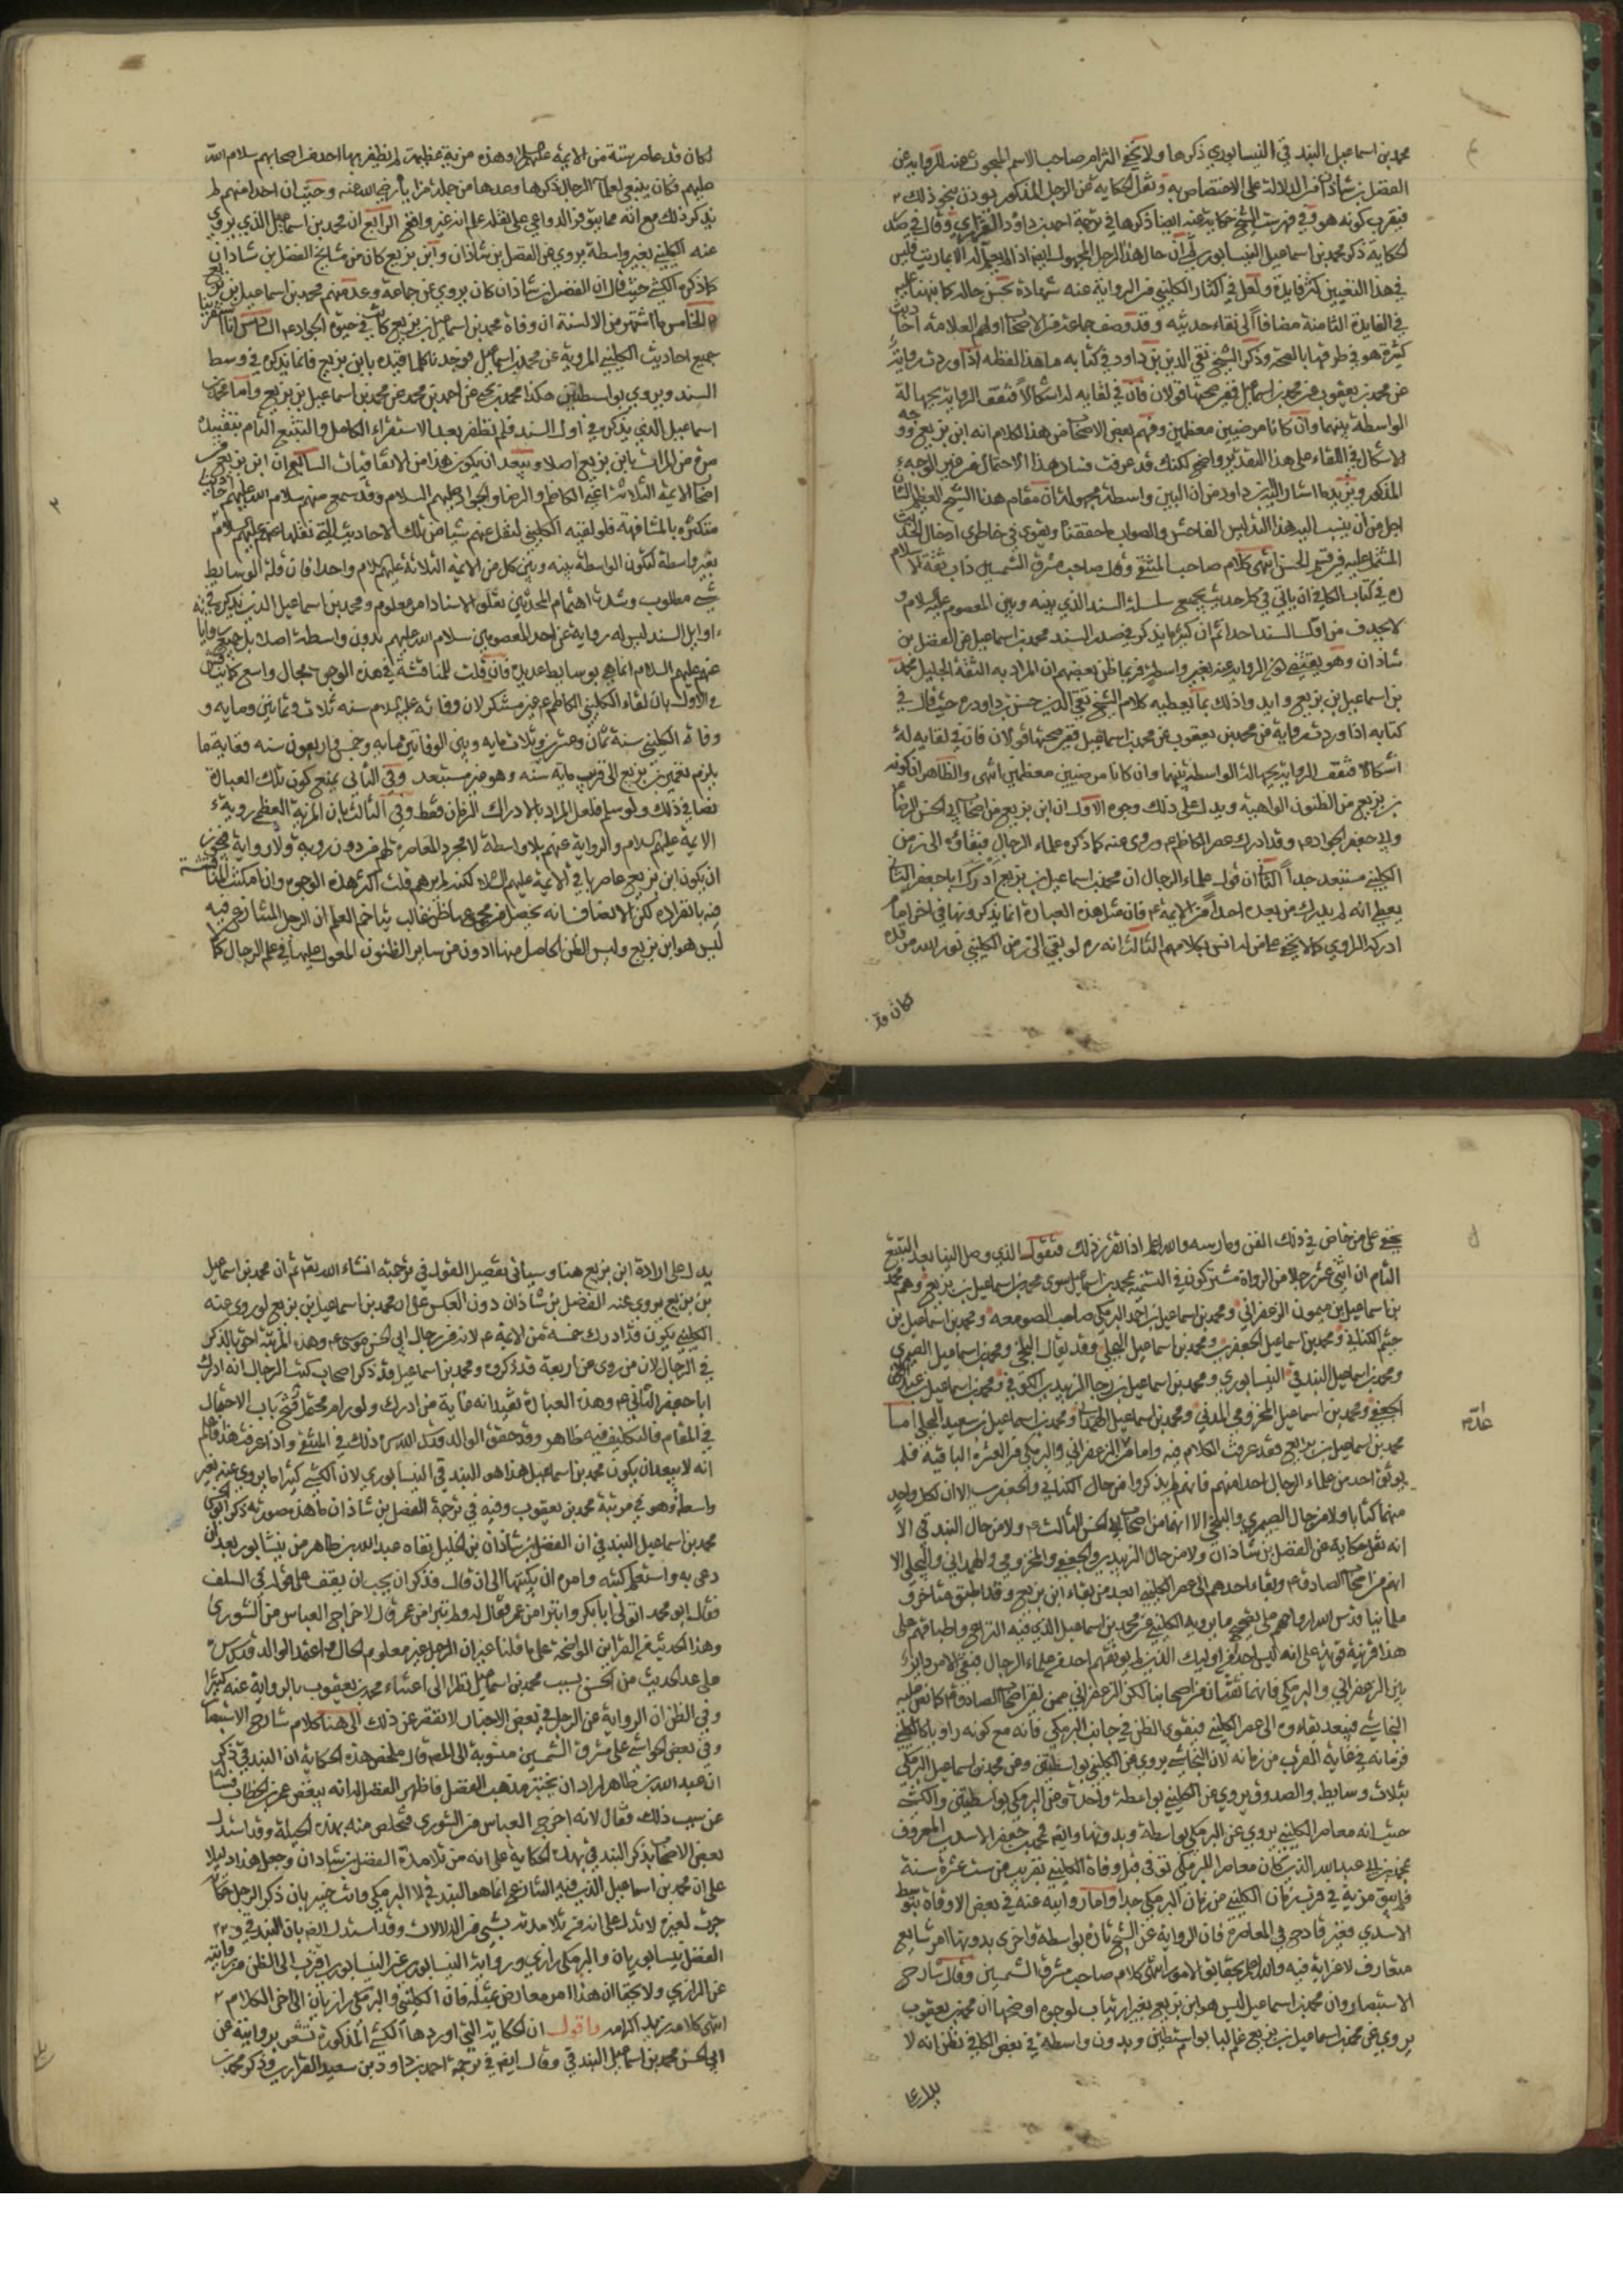 محمد بن اسماعيل البندقي النيسابوري ذكرها ولا يخفى التزام صاحب الاسم المبحوث عنه للرواية عن
الفضل بن شاذان فرالدلالة على الاختصاص به ونقل الحكاية عن الرجل المذكور يوذن بنحو ذلك
فيقرب كونه هو وفي فهرست الشيخ حكاية عنه ايضا ذكرها في ترجمة احمد بن داود الفزاري وقال في صدر
الحكاية ذكر محمد بن اسماعيل النيسابوري ثم ان حال هذا الرجل المجهول
في هذا التعيين كثير فايدة ولعل في اكثار الكليني من الرواية عنه شهادة بحسن حاله كما نبهنا عليه
في الفايدة الثامنة مضافا الى نقاء حديثه وقد وصف جماعة من الاصحاب اولهم العلامة احاديث
كثيرة هو في طرقها بالصحة وذكر الشيخ تقي الدين بن داود في كتابه ما هذا لفظه اذا وردت رواية
عن محمد بن يعقوب عن محمد بن اسماعيل ففي صحتها قولان فان في لقايه له اشكالا فتقف الرواية بجهالة
الواسطة بينهما وان كانا مرضيين معظمين وفهم بعض الاصحاب من هذا الكلام انه ابن بزيع ووجه
الاشكال في اللقاء على هذا التقدير واضح لكنك قد عرفت فساد هذا الاحتمال من غير الوجه
المذكور ويزيد ما اشار اليه بن داود من ان البين واسطة مجهولة ان مقام هذا الشيخ العظيم الشان
اجل من ان ينسب اليه هذا التدليس الفاحش والصواب ما حققناه ويقوى في خاطري ادخال الحديث
المشتمل عليه في قسم الحسن انتهى كلام صاحب المنتقى وقال صاحب مشرق الشمسين داب ثقة الاسلام
ره في كتاب الكافي ان ياتي في كل حديث بجميع سلسلة السند الذي بينه وبين المعصوم عليه السلام و
لا يحذف من اول السند احدا ثم ان كثيرا ما يذكر في صدر السند محمد بن اسماعيل عن الفضل بن
شاذان وهو يقتضي كون الرواية عنه بغير واسطة فربما ظن بعضهم ان المراد به الثقة الجليل محمد
بن اسماعيل بن بزيع وايد واذلك بما يعطيه كلام الشيخ تقي الدين حسن بن داود ره حيث قال في
كتابه اذا وردت رواية من محمد بن يعقوب عن محمد بن اسماعيل ففي صحتها قولان فان في لقايه له
اشكالا فتقف الرواية بجهالة الواسطة بينهما وان كانا مرضيين معظمين انتهى والظاهر ان كونه
بن بزيع من الظنون الواهية ويدل على ذلك وجوه الاول ان ابن بزيع من اصحاب ابي الحسن الرضا
وابي جعفر الجواد ع وقد ادرك عصر الكاظم ع وروى عنه كما ذكره علماء الرجال فبقاؤه الى زمن
الكليني مستبعد جدا الثاني ان قول علماء الرجال ان محمد بن اسماعيل بن بزيع ادرك ابا جعفر الثاني
يعطي انه لم يدرك من بعده احدا من الايمة ع فان مثل هذه العبارة انما يذكرونها في اخر امام
ادركه الراوي كما لا يخفى على من له انس بكلامهم الثالث انه ره لو بقي الى زمن الكليني نور الله مرقده
كان قد
لكان قد عاصر ستة من الايمة عليهم السلام وهذه مزية عظيمة لم يظفر بها احد من اصحابهم سلام الله
عليهم فكان ينبغي لعلماء الرجال ذكرها وعدها من جملة مزاياه رضي الله عنه وحيث ان احدا منهم لم
يذكر ذلك مع انه مما يتوفر الدواعي على نقله علم انه غير واقع الرابع ان محمد بن اسماعيل الذي يروي
عنه الكليني بغير واسطة يروي عن الفضل بن شاذان وابن بزيع كان من مشايخ الفضل بن شاذان
كما ذكره الكشي حيث قال ان الفضل بن شاذان كان يروي عن جماعة وعد منهم محمد بن اسماعيل بن بزيع
الخامس ما اشتهر من الالسنة ان وفاة محمد بن اسماعيل بن بزيع كانت في حيوة الجواد ع السادس انا استقرينا
جميع احاديث الكليني المروية عن محمد بن اسماعيل فوجدناه كلما قيده بابن بزيع فانما يذكره في وسط
السند ويروي بواسطتين هكذا محمد بن يحيى عن احمد بن محمد عن محمد بن اسماعيل بن بزيع واما محمد بن
اسماعيل الذي يذكره في اول السند فلم نظفر بعد الاستقراء الكامل والتتبع التام بتقييده
مرة من المرات بابن بزيع اصلا ويبعد ان يكون هذا من الاتفاقيات السابع ان ابن بزيع من
اصحاب الايمة الثلاثة اعني الكاظم والرضا والجواد عليهم السلام وقد سمع منهم سلام الله عليهم احاديث
متكثرة بالمشافهة فلو لقيه الكليني لنقل عنهم شيئا من تلك الاحاديث التي نقلها عنهم عليهم السلام
بغير واسطة لتكون الواسطة بينه وبين كل من الايمة الثلاثة عليهم السلام واحدا فان قلة الوسايط
شيء مطلوب وشدة اهتمام المحدثين بعلو الاسناد امر معلوم ومحمد بن اسماعيل الذي يذكره في
اوايل السند ليس له رواية عن احد المعصومين سلام الله عليهم بدون واسطة اصلا بل جميع رواياته
عنهم عليهم السلام انما هي بوسايط عديدة فان قلت للمناقشة في هذه الوجوه مجال واسع كما يقال
في الاول بان لقاء الكليني الكاظم ع غير مستنكر لان وفاته عليه السلام سنه ثلاث وثمانين ومايه و
وفاة الكليني سنة ثمان وعشرين وثلاث مايه وبين الوفاتين مايه وخمس واربعون سنه فغاية ما
يلزم تعمير بن بزيع الى قريب مايه سنه وهو غير مستبعد وفي الثاني بمنع كون تلك العبارة
نصا في ذلك ولو سلم فلعل المراد بالادراك الزمان فقط وفي الثالث بان المزية العظمى روية
الايمة عليهم السلام والرواية عنهم بلا واسطة لا مجرد المعاصرة لهم من دون روية ولا رواية فيجوز
ان يكون ابن بزيع عاصر باقي الايمة عليهم السلام لكنه لم يرهم قلت اكثر هذه الوجوه وان امكنت المناقشة
فيه بانفراده لكن الانصاف انه يحصل من مجموعها ظن غالب يتاخم العلم ان الرجل المتنازع فيه
ليس هو ابن بزيع وليس الظن الحاصل منها ادون من ساير الظنون المعول عليها في علم الرجال كما لا
يخفى على من خاض في ذلك الفن ومارسه والله اعلم اذا تقرر ذلك فنقول الذي وصل الينا بعد التتبع
التام ان اثنى عشر رجلا من الرواة مشتركون في التسمية بمحمد بن اسماعيل سوى محمد بن اسماعيل بن بزيع وهم محمد
بن اسماعيل بن ميمون الزعفراني ومحمد بن اسماعيل بن احمد البرمكي صاحب الصومعه ومحمد بن اسماعيل بن
خيثم الكناني ومحمد بن اسماعيل الجعفري ومحمد بن اسماعيل البجلي وقد يقال البلخي ومحمد بن اسماعيل الصيمري
ومحمد بن اسماعيل البندقي النيسابوري ومحمد بن اسماعيل بن رجاء الزبيدي الكوفي ومحمد بن اسماعيل بن عبد الرحمن
الجعفي ومحمد بن اسماعيل المخزومي المدني ومحمد بن اسماعيل الهمداني ومحمد بن اسماعيل بن سعيد البجلي اما
محمد بن اسماعيل بن بزيع فقد عرفت الكلام فيه واما من الزعفراني والبرمكي من العشرة الباقية فلم
يوثق احد من علماء الرجال احدا منهم فانهم لم يذكروا من حال الكناني والجعفري الا ان لكل واحد
منهما كتابا ولا من حال الصيمري والبلخي الا انهما من اصحاب ابي الحسن الثالث ع ولا من حال البندقي الا
انه نقل حكاية عن الفضل بن شاذان ولا من حال الزبيدي والجعفي والمخزومي والهمداني والبجلي الا
انهم من اصحاب الصادق ع وبقاء احدهم الى عصر الكليني ابعد من بقاء ابن بزيع وقد اطبق متاخروا
علماينا قدس الله ارواحهم على تصحيح ما يرويه الكليني عن محمد بن اسماعيل الذي فيه النزاع واطباقهم على
هذا قرينة قوية على انه ليس احدا من اوليك الذين لم يوثقهم احد من علماء الرجال فبقي الامر دايرا
بين الزعفراني والبرمكي فانهما ثقتان من اصحابنا لكن الزعفراني ممن لقى اصحاب الصادق ع كما نص عليه
النجاشي فيبعد بقاءه الى عصر الكليني فيقوى الظن في جانب البرمكي فانه مع كونه راويا كالكليني
فزمانه في غاية القرب من زمانه لان النجاشي يروي عن الكليني بواسطتين وعن محمد بن اسماعيل البرمكي
بثلاث وسايط والصدوق يروي عن الكليني بواسطة واحدة وعن البرمكي بواسطتين والكشي
حيث انه معاصر الكليني يروي عن البرمكي بواسطة وبدونها وايضا فمحمد بن جعفر الاسدي المعروف
بمحمد بن ابي عبد الله الذي كان معاصرا للبرمكي توفي قبل وفاة الكليني بقريب من ست عشرة سنة
فلم يبق مزية في قرب زمان الكليني من زمان البرمكي جدا واما روايته عنه في بعض الاوقات بتوسط
الاسدي فغير قادح في المعاصرة فان الرواية عن الشيخ تارة بواسطة واخرى بدونها امر شايع
متعارف لا غرابة فيه والله اعلم بحقايق الامور انتهى كلام صاحب مشرق الشمسين وقال شارح
الاستبصار وان محمد بن اسماعيل ليس هو ابن بزيع بغير ارتياب لوجوه اوضحها ان محمد بن يعقوب
يروي عن محمد بن اسماعيل بن بزيع غالبا بواسطتين وبدون واسطة في بعض الكافي نظن انه لا
يدل على
يدل على ارادة ابن بزيع هنا وسياتي تفصيل القول في ترجمته انشاء الله تعالى ثم ان محمد بن اسماعيل
بن بزيع يروي عنه الفضل بن شاذان دون العكس على ان محمد بن اسماعيل بن بزيع لو روى عنه
الكليني يكون قد ادرك خمسة من الايمة ع لانه من رجال ابي الحسن موسى ع وهذه المرتبة احق بالذكر
في الرجال لان من روى عن اربعة قد ذكروه ومحمد بن اسماعيل قد ذكر اصحاب كتب الرجال انه ادرك
ابا جعفر الثاني ع وهذه العبارة تفيد انه غاية من ادرك ولو رام محتمل فتح باب الاحتمال
في المقام فالتكليف فيه ظاهر وقد حقق الوالد قدس الله سره ذلك في المنتقى واذا عرفت هذا فاعلم
انه لا يبعد ان يكون محمد بن اسماعيل هذا هو البندقي النيسابوري لان الكشي كثيرا ما يروي عنه بغير
واسطة وهو في مرتبة محمد بن يعقوب وفيه في ترجمة الفضل بن شاذان ما هذه صورته ذكر ابو الحسن
محمد بن اسماعيل البندقي ان الفضل بن شاذان بن الخليل نفاه عبد الله بن طاهر من نيسابور بعد ان
دعى به واستعلم كتبه وامره ان يكتبها الى ان قال فذكر انه يجب ان يقف على قوله في السلف
فقال ابو محمد اتولى ابا بكر واتبرا من عمر فقال له ولم تتبرا من عمر قال لاخراجه العباس من الشورى
وهذا الحديث من القراين الواضحة على ما قلنا غير ان الرجل غير معلوم الحال واعتمد الوالد قدس سره
على عد الحديث من الحسن بسبب محمد بن اسماعيل نظرا الى اعتناء محمد بن يعقوب بالرواية عنه كثيرا
وفي الظن ان الرواية عن الرجل في بعض الاحيان لا تقصر عن ذلك الى هنا كلام شارح الاستبصار
وفي بعض الحواشي على مشرق الشمسين منسوبة الى المصنف قال ملخص هذه الحكاية ان البندقي ذكر
ان عبد الله بن طاهر اراد ان يختبر مذهب الفضل فاظهر الفضل له انه يبغض عمر بن الخطاب فسئله
عن سبب ذلك فقال لانه اخرج العباس من الشورى فتخلص منه بهذه الحيلة وقد استدل
بعض الاصحاب بذكر البندقي بهذه الحكاية على انه من تلامذة الفضل بن شاذان وجعل هذا دليلا
على ان محمد بن اسماعيل الذي فيه التنازع انما هو البندقي لا البرمكي وانت خبير بان ذكر الرجل حكاية
جرت لغيره لا تدل على انه من تلامذته بشيء من الدلالات وقد استدل ايضا بان البندقي و
الفضل نيسابوريان والبرمكي رازي ورواية النيسابوري عن النيسابوري اقرب الى الظن من روايته
عن الرازي ولا يخفى ان هذا امر معارض بمثله فان الكليني والبرمكي رازيان الى اخر الكلام
انتهى كلامه زيد اكرامه واقول ان الحكاية التي اوردها الكشي المذكورة تشعر بروايته عن
ابي الحسن محمد بن اسماعيل البندقي وقال ايضا في ترجمة احمد بن داود بن سعيد الفزاري وذكر محمد بن